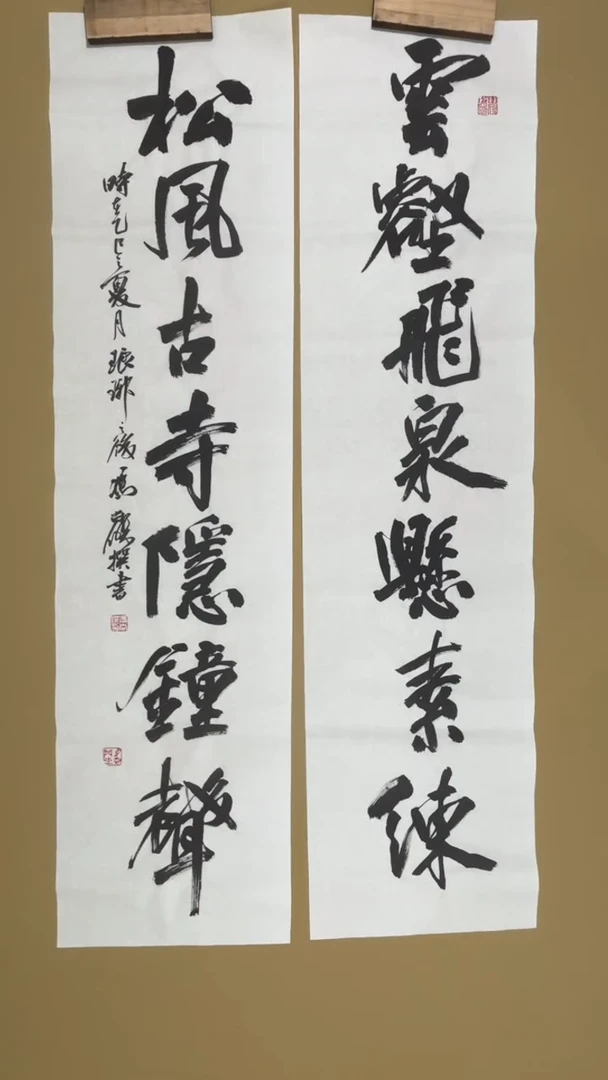 雲壑飛泉懸素練
松風古寺隱鐘聲
時在乙巳夏月琅琊
撰書